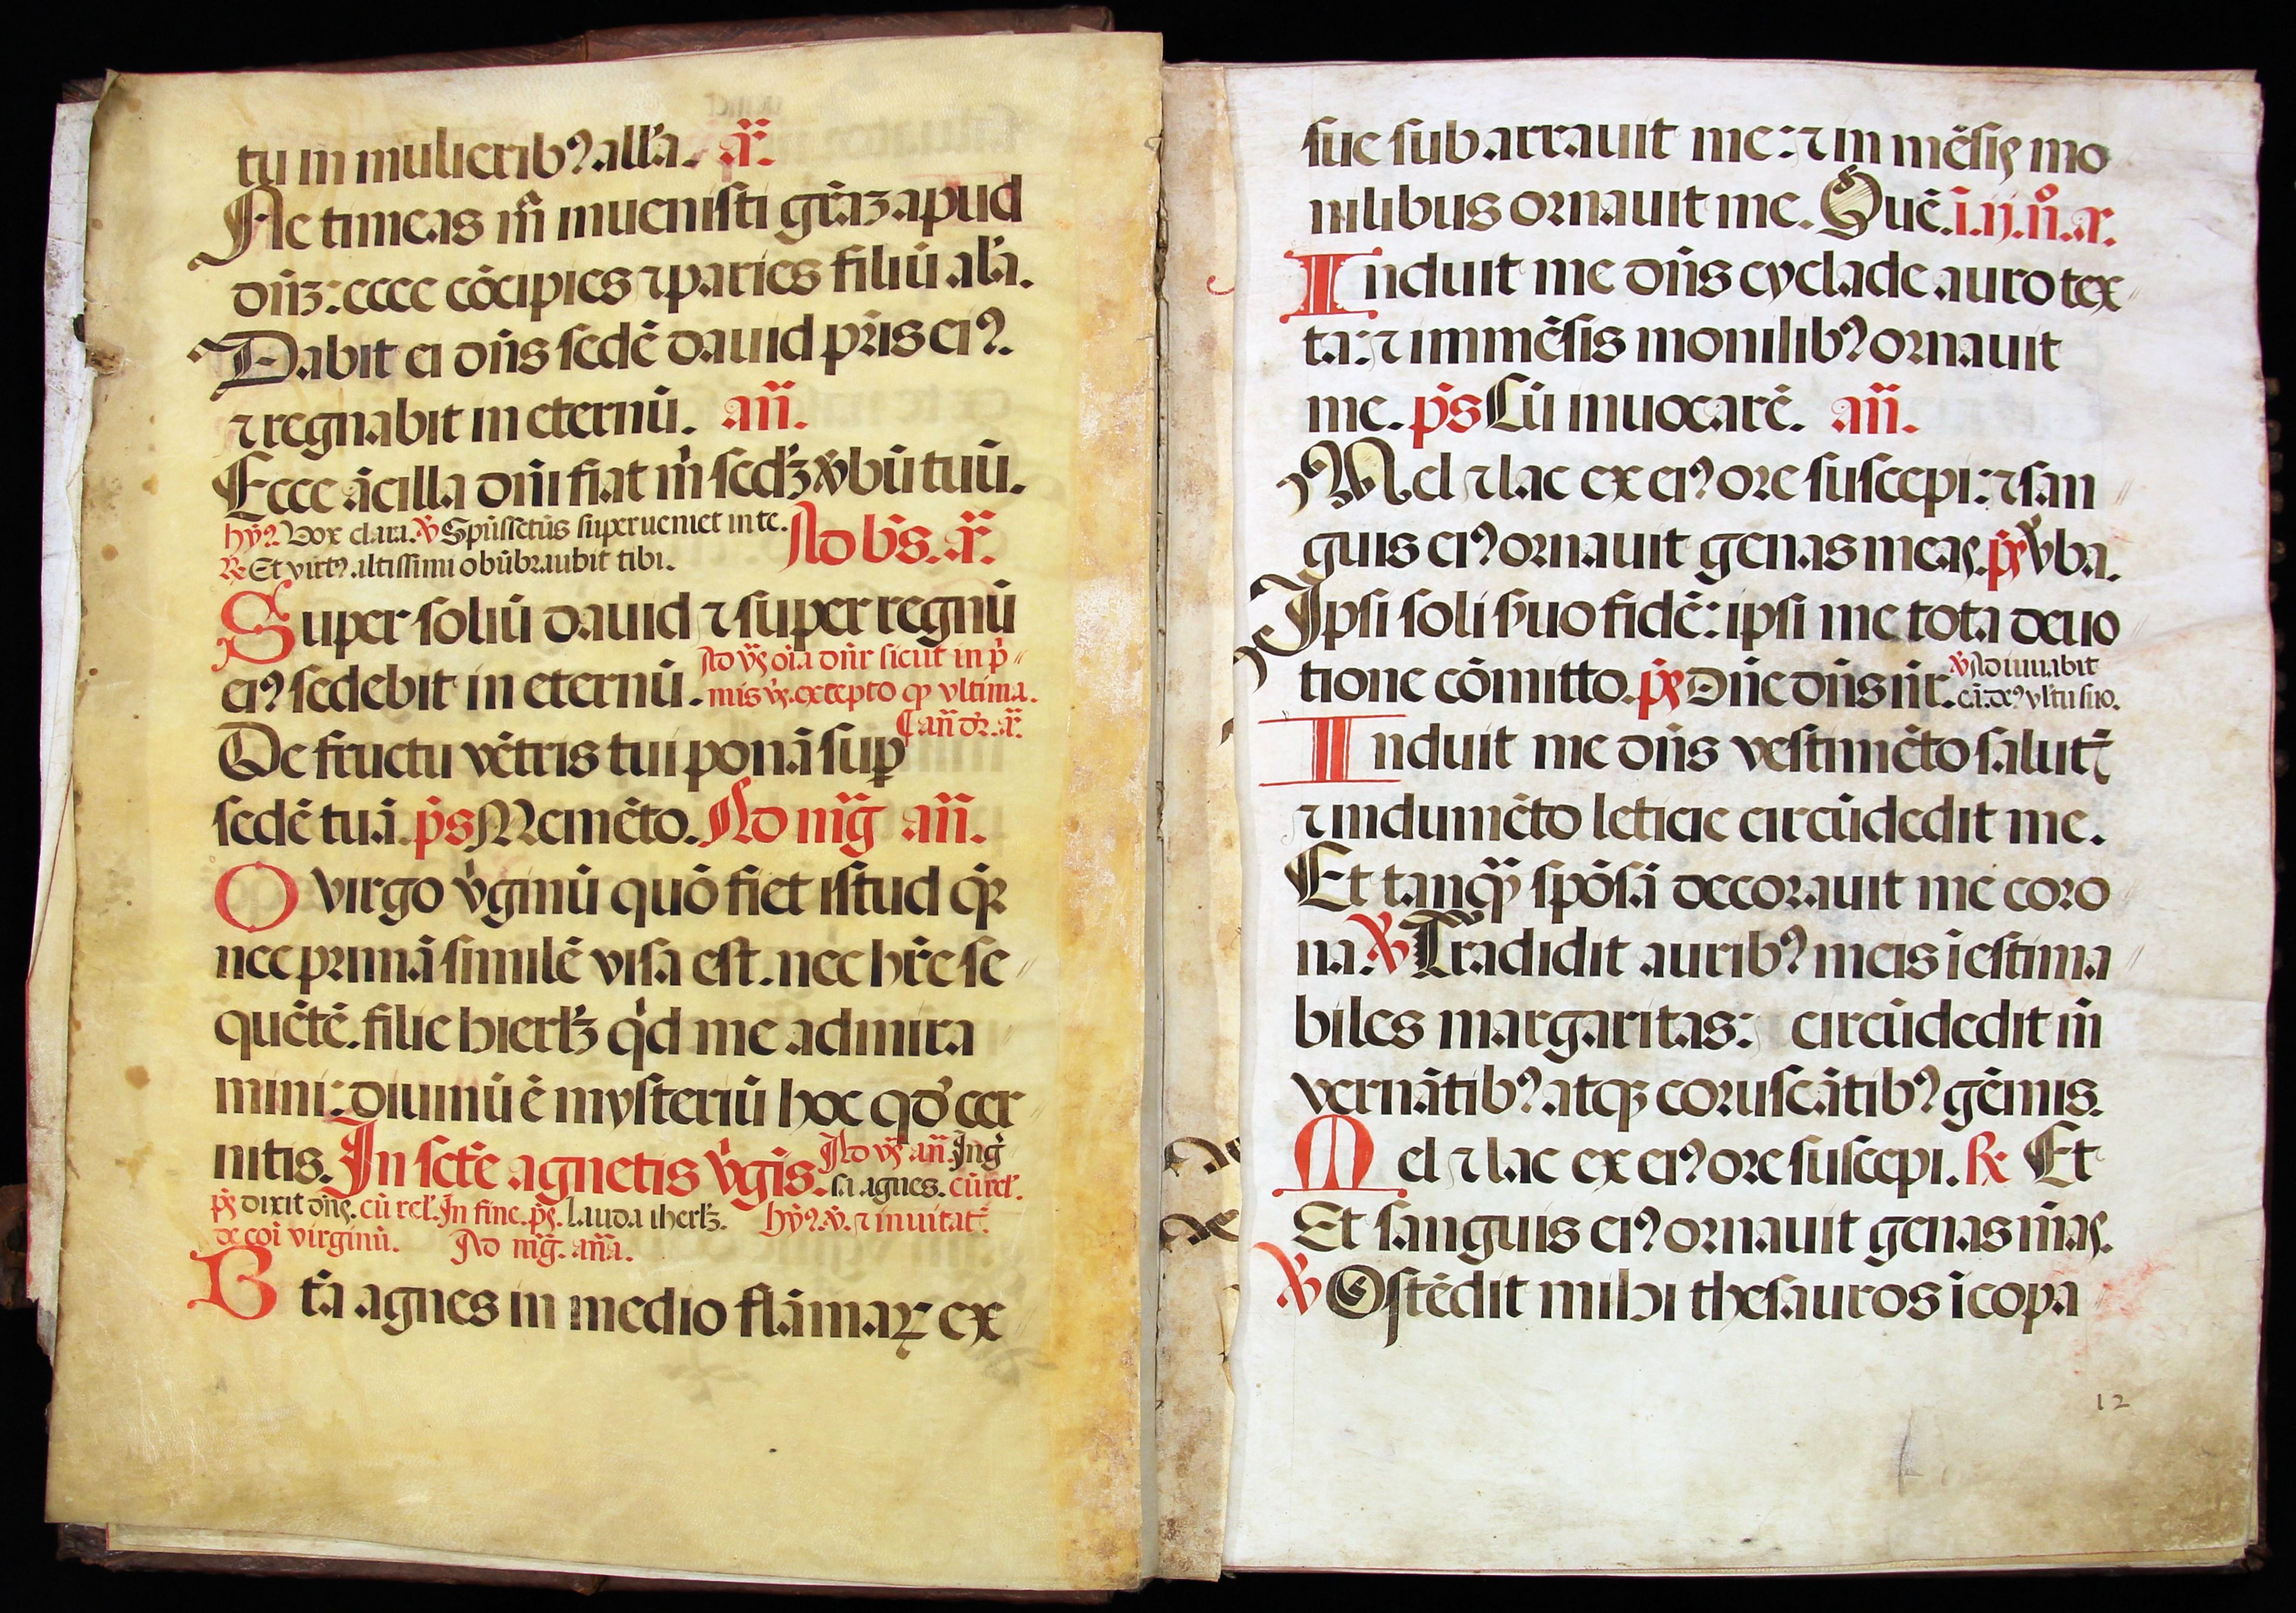 tu in mulierib⁹. all'a. a͞r.
Ne timeas m̄ inuenisti gr̄aꝫ apud
dn̄ꝫ: ecce cōcipies ⁊ paries filiū al'a.
Dabit ei dn̄s sedē dauid pr̄is ei⁹.
⁊ regnabit in eternū. an̄.
Ecce ācilla dn̄i fiat m̄ scd'ꝫ v̄bū tuū.
hȳ⁹. Vox clara. ℣ Spūssctūs superueniet in te. Ad b̄s. a͞r.
℞ Et virt⁹ altissimi obūbraubit tibi.
Super soliū dauid ⁊ super regnū
ei⁹ sedebit in eternū. Ad v̄s oīa dn̄r sicut in p̄
mis v̄s. excepto ꝙ vltima.
¶ an̄ dr̄. a͞r.
De fructu vētris tui ponā suꝑ
sedē tuā. p̄s Memēto. Ad mḡ an̄.
O virgo v̄ginū quō fiet istud qr̄
nec primā similē visa est. nec hr̄e se
quētē. filie hierl'ꝫ qd̄ me admira
mini: diuinū ē mysteriū hoc qd' cer
nitis. In scte agnetis v̄gis. Ad v̄s an̄. Ing̅
sa agnes. cū rel'.
p̄s dixit dn̄s. cū rel'. In fine. p̄s. lauda iherl'ꝫ. hȳ⁹. ℣. ⁊ inuitat̄.
de coi virginū. Ad mḡ. an̄a.
Bt̄a agnes in medio flāmaꝝ ex
sue subarrauit me: ⁊ in mēsis mo
nilibus ornauit me. Quē. i. ij. n̊. a͞r.
Induit me dn̄s cyclade auro tex
ta: ⁊ immēsis monilib⁹ ornauit
me. p̄s Cū inuocarē. an̄.
Mel ⁊ lac ex ei⁹ ore suscepi: ⁊ san
guis ei⁹ ornauit genas meas. p̄s v̄ba.
Ipsi soli s'uo fidē: ipsi me tota deuo
tione cōmitto. p̄s Dn̄e dn̄s nr̄. ℣ Adiuuabit
eā. de⁹ vl'tu suo.
Induit me dn̄s vestimēto salut̄
⁊ indumēto leticie circūdedit me.
Et tanqꝫ spōsā decorauit me coro
na. ℣ Tradidit aurib⁹ meis īestima
biles margaritas: circūdedit m̄
vernātib⁹ atqꝫ coruscātib⁹ gēmis.
Mel ⁊ lac ex ei⁹ ore suscepi. ℞ Et
Et sanguis ei⁹ ornauit genas m̄as.
℣ Ostēdit mihi thesauros īcopa
12